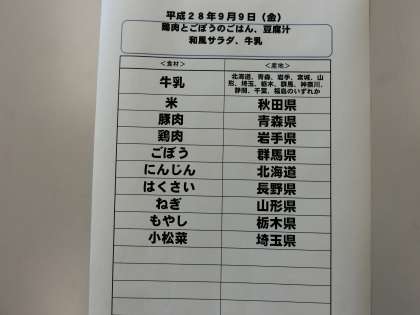 平成28年9月9日（金）
鶏肉とごぼうのごはん、豆腐汁
和風サラダ、牛乳
＜食材＞ ＜産地＞
牛乳 北海道、青森、岩手、宮城、山
形、埼玉、栃木、群馬、神奈川、
静岡、千葉、福島のいずれか
米 秋田県
豚肉 青森県
鶏肉 岩手県
ごぼう 群馬県
にんじん 北海道
はくさい 長野県
ねぎ 山形県
もやし 栃木県
小松菜 埼玉県